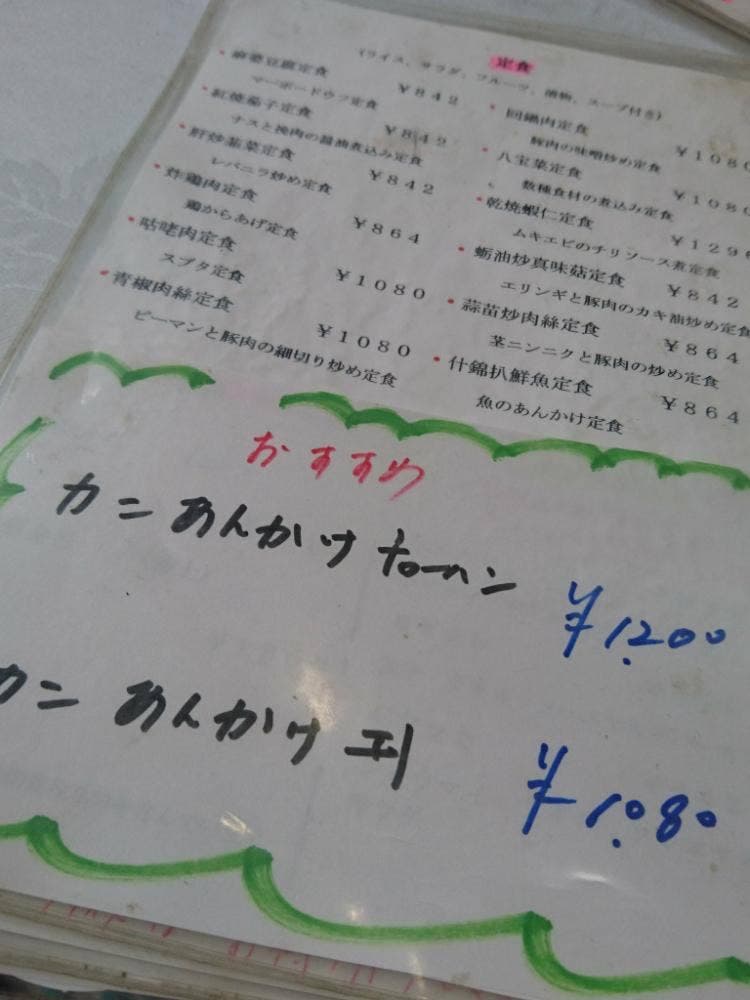 定食
(ライス、サラダ、フルーツ、漬物、スープ付き)
麻婆豆腐定食 ￥842
マーボードウフ定食
紅焼茄子定食 ￥842
ナスと挽肉の醤油煮込み定食
肝炒韮菜定食 ￥842
レバニラ炒め定食
炸鶏肉定食 ￥864
鶏からあげ定食
咕咾肉定食 ￥1080
スブタ定食
青椒肉絲定食 ￥1080
ピーマンと豚肉の細切り炒め定食
回鍋肉定食 ￥1080
豚肉の味噌炒め定食
八宝菜定食 ￥1080
数種食材の煮込み定食
乾焼蝦仁定食 ￥1296
ムキエビのチリソース煮定食
蛎油炒真味菇定食 ￥842
エリンギと豚肉のカキ油炒め定食
蒜苗炒肉絲定食 ￥864
茎ニンニクと豚肉の炒め定食
什錦扒鮮魚定食 ￥864
魚のあんかけ定食
おすすめ
カニあんかけ
￥1.200
カニあんかけ
￥1.080